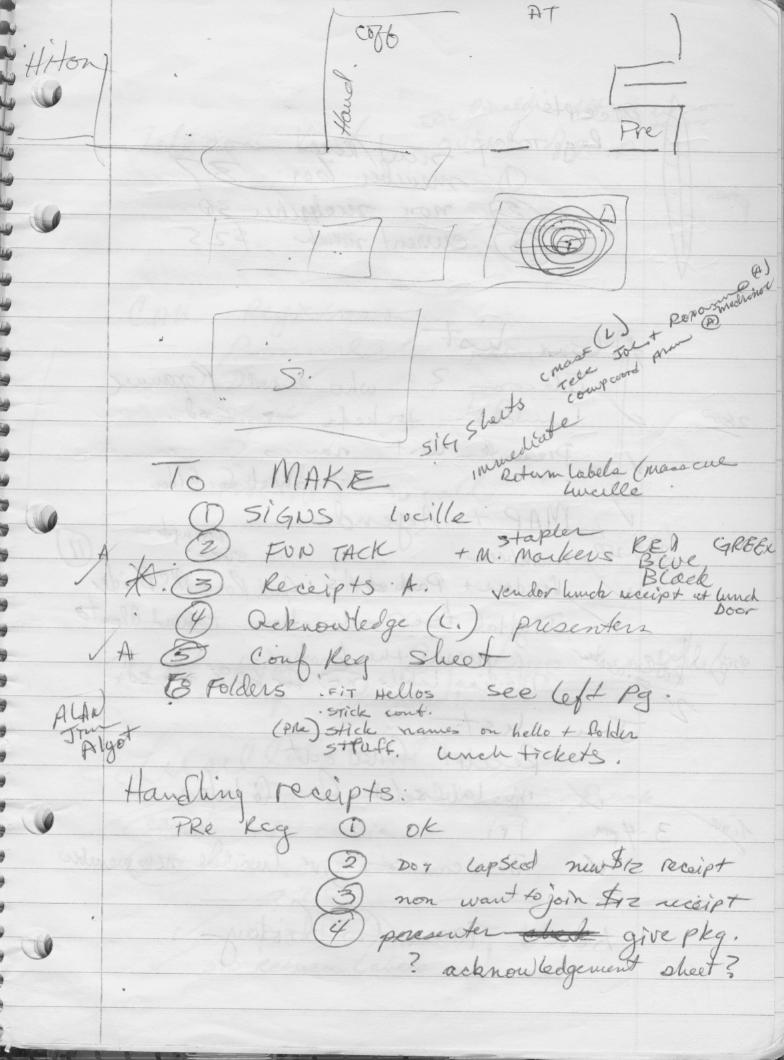 AT
Hilton
Coff
Hand.
Pre
D
S.
(L)
Tele Joe + Roxanne (A)
Alan (A)
SIG Sheets
immediate
Return Labels (
Lucille
To MAKE
① SIGNS Locille
② FUN TACK
stapler
+ M. Markers RED GREEN
BLUE
Black
A
③ Receipts A.
vendor lunch receipt at lunch
Door
④ Acknowledge (L.) presenters
✓ A ⑤ Conf Reg sheet
6 Folders . FIT Hellos see left pg.
. stick conf.
(PRe) stick names on hello + folder
stuff. lunch tickets.
ALAN
Jim
Algot
Handling receipts:
PRe Reg ① OK
② Do > lapsed new $12 receipt
③ non want to join $12 receipt
④ presenter check give pkg.
? acknowledgement sheet?